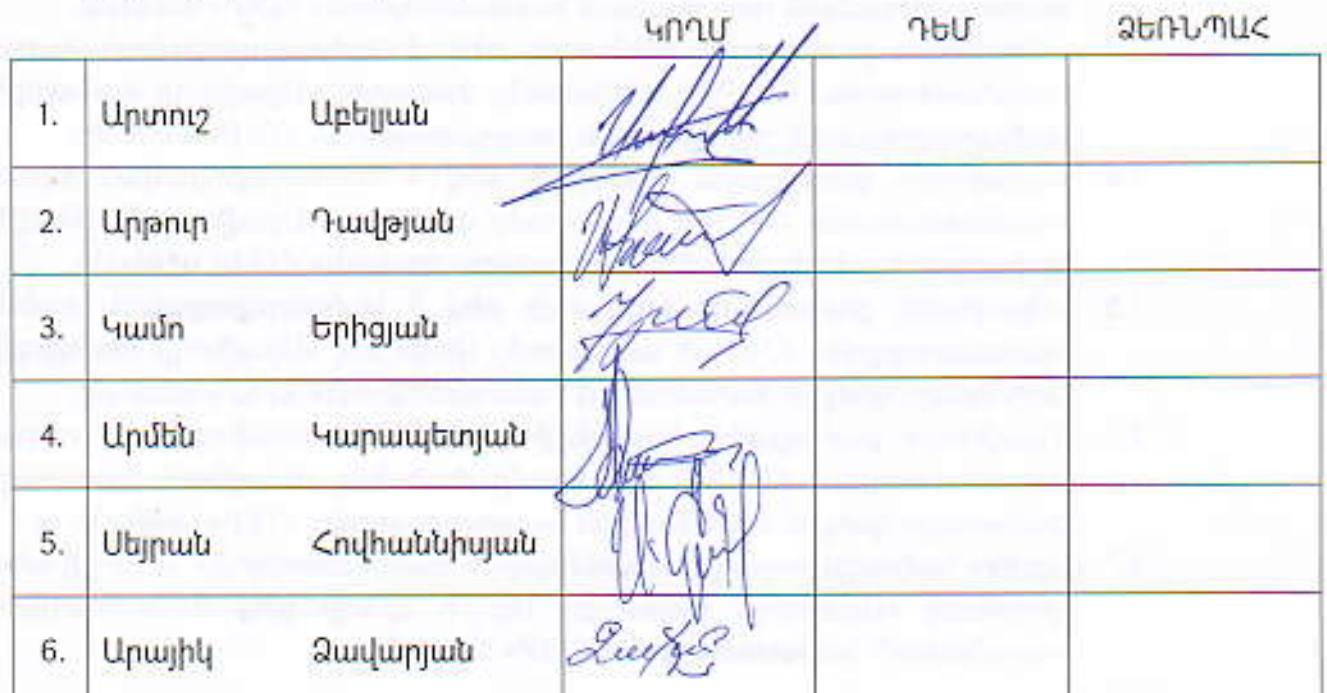 ԿՈՂՄ ԴԵՄ ՁԵՌՆՊԱՀ
1. Արտուշ Աբելյան
2. Արթուր Դավթյան
3. Կամո Երիցյան
4. Արմեն Կարապետյան
5. Սեյրան Հովհաննիսյան
6. Արայիկ Զավարյան